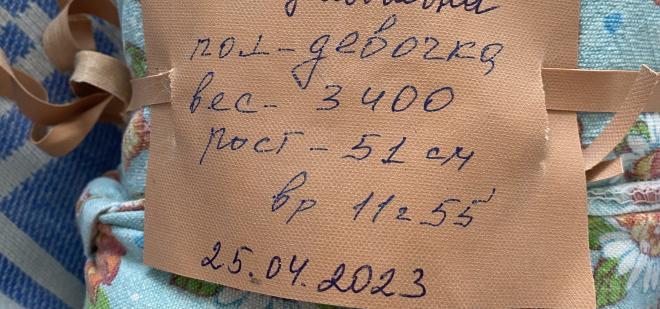 пол - девочка
вес - 3400
рост - 51 см
вр 11 ч 55'
25.04.2023